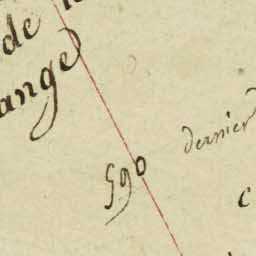 de
ange
590 dernier
c